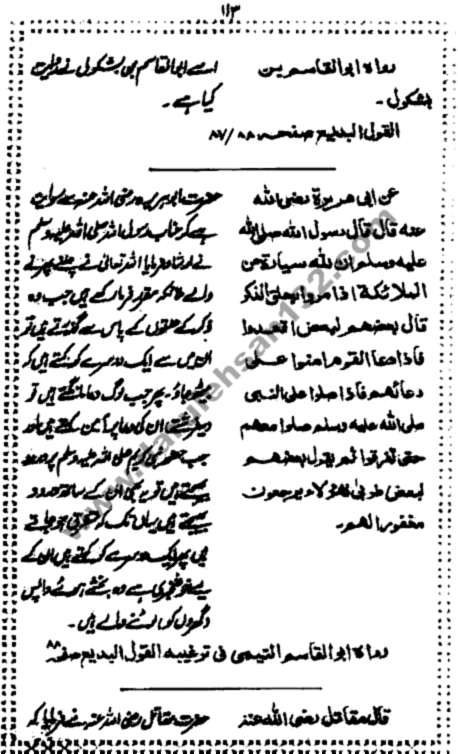 ۱۱۳
رواه ابو القاسم بن
بشکول۔
القول البدیع صفحہ ۸۷/۸۸
اسے ابو القاسم بن بشکول نے روایت
کیا ہے۔
عن ابی هريرة رضی الله
عنه قال قال رسول الله صلی الله
عليه وسلم ان لله سيارة من
الملائكة اذا مروا بحلق الذكر
قال بعضهم لبعض اقعدوا
فاذا دعا القوم امنوا على
دعائهم فاذا صلوا على النبی
صلی الله عليه وسلم صلوا معهم
حتى تفرقوا ثم يقول بعضهم
لبعض طوبى لهؤلاء يرجعون
مغفور الهم۔
حضرت ابو ہریرہ رضی اللہ عنہ سے روایت
ہے کہ جناب رسول اللہ صلی اللہ علیہ وسلم
نے ارشاد فرمایا اللہ تعالیٰ نے چلنے پھرنے
والے ملائکہ مقرر فرمارکھے ہیں جب وہ
ذکر کے حلقوں کے پاس سے گزرتے ہیں تو
ان میں سے ایک دوسرے کو کہتے ہیں کہ
بیٹھ جاؤ۔ پھر جب لوگ دعا مانگتے ہیں تو
فرشتے ان کی دعا پر آمین کہتے ہیں اور
جب حضور نبی کریم صلی اللہ علیہ وسلم پر درود
بھیجتے ہیں تو یہ بھی ان کے ساتھ درود
بھیجتے ہیں یہاں تک کہ متفرق ہو جاتے
ہیں پھر ایک دوسرے کو کہتے ہیں ان کے
لیے خوشخبری ہے وہ بخشے ہوئے واپس
گھروں کو لوٹنے والے ہیں۔
رواه ابو القاسم التیمی فی ترغیبه القول البدیع صفحہ ۸۸
قال مقاتل رضی الله عنه
حضرت مقاتل رضی اللہ عنہ نے فرمایا کہ
www.darulehsan122.com